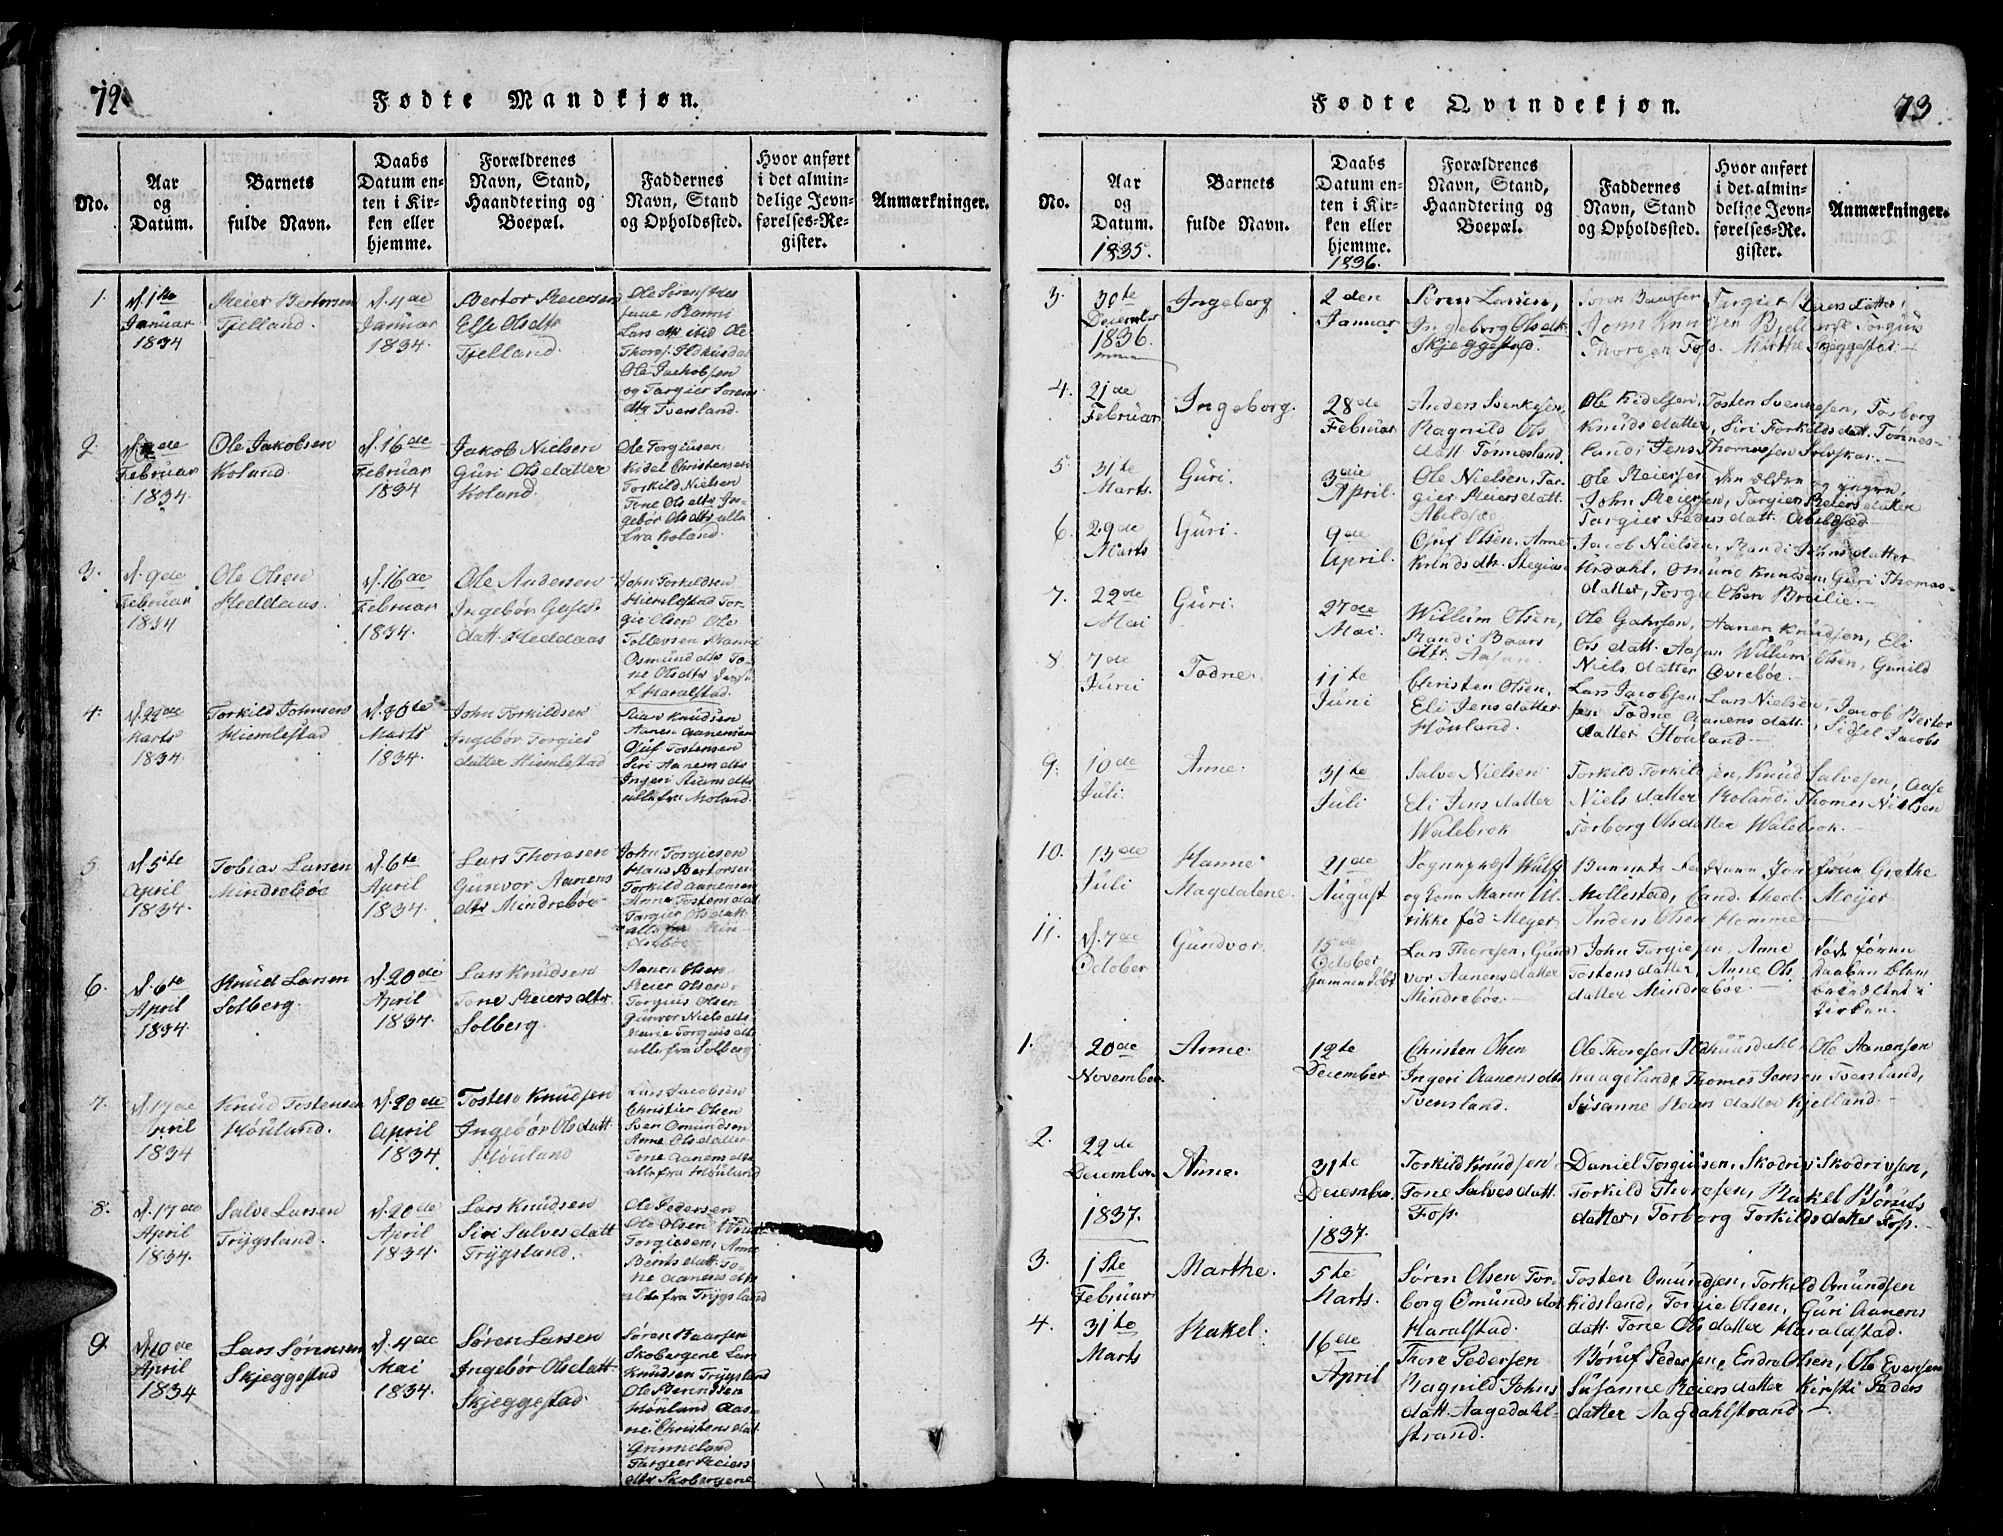 72
Fødte Mandkjøn.
No.
Aar
og
Datum.
Barnets
fulde Navn.
Daabs
Datum en-
ten i Kir-
ken eller
hjemme.
Forældrenes
Navn, Stand,
Haandtering og
Boepæl.
Faddernes
Navn, Stand
og Opholdssted.
Hvor anført
i det almin-
delige Jevn-
førelses-Re-
gister.
Anmærkninger.
1.
d. 1ste
Januar
1834
Reier Bertorsen
Fjelland.
d. 4de
Januar
1834.
Bertor Reiersen
Else Olsdtr
Fjelland.
Lars dtr ibid Ole
Ole Jachobsen
og Targier Sørens
dtr Tversland.
2.
Februar
1834.
Ole Jakobsen
Roland
d. 16de
Februar
1834
Jakob Nielsen
Guri Olsdatter
Roland.
Ole Torgiusen
Kidel Christensen
Torkild Nielsen
Tone Olsdtr In-
gebør Olsdtr alle
fra Roland.
3.
d. 9de
Februar
1834
Ole Olsen
Heddaas.
d. 16de
Februar
1834.
Ole Andersen
Ingebør
datt. Heddaas
John Torkildsen
Hiemlestad Tor-
gie Olsen Ole
Tollevsen
Osmund dtr To-
ne Olsdtr
f Haralstad.
4.
d. 22de
Marts
1834.
Torkild Johnsen
Hiemlestad
d. 30te
Marts
1834.
John Torkildsen
Ingebør Torgies
datter Hiemlestad
Knudsen
Aanen Aanensen
Oluf Tostensen
Siri Aanensdtr
Ingeri
alle fra Moland.
5.
d. 5te
April
1834.
Tobias Larsen
Mindrebøe
d. 6te
April
1834.
Lars Thorasen
Gunvor Aanens
dtr Mindrebøe
John Torgiesen
Hans Bertorsen
Torkild Aanensen
Anne Tostensdat
Targier Olsdatt
alle fra Min-
drebøe
6.
d. 6te
April
1834
Knud Larsen
Solberg.
d. 20de
April
1834.
Lars Knudsen
Tone Reiersdtr
Solberg
Aanen Olsen
Reier Olsen
Torguis Olsen
Gunvor Nielsdtr
Marie Torguisdtr
alle fra Solberg
7.
d. 17de
April
1834
Knud Tostensen
Høuland.
d. 20de
April
1834
Tosten Knudsen
Ingebør Olsdatt
Høuland
Lars Jacobsen
Christier Olsen
Sven Omundsen
Anne Olsdatter
Tone Aanensdtr
alle fra Høuland
8.
d. 17de
April
1834.
Salve Larsen
Trygsland.
d. 20de
April
1834.
Lars Knudsen
Siri Salvesdatt
Trygsland.
Ole Pedersen
Ole Olsen
Torgiesen, Anne
Berntsdatt. To-
ne Aanensdtr
alle fra Trygsland
9.
d. 10de
April
1834
Lars Sørensen
Skjeggestad
d. 4de
Mai
1834.
Søren Larsen
Ingebør Olsdatt
Skjeggestad
Søren Baarsen
Skobergene Lars
Knudsen Trygsland
Ole Berentsen
Høuland Aas-
ne Christensdat
Grimeland
Targier Reiers
dtr Skobergene
73.
Fødte Qvindekjøn.
No.
Aar
og
Datum.
1835.
Barnets
fulde Navn.
Daabs
Datum en-
ten i Kir-
ken eller
hjemme.
1836.
Forældrenes
Navn, Stand,
Haandtering og
Boepæl.
Faddernes
Navn, Stand
og Opholdssted.
Hvor anført
i det almin-
delige Jevn-
førelses-Re-
gister.
Anmærkninger.
3.
30te
December
1836.
Ingeborg
2den
Januar
Søren Larsen,
Ingeborg Olsdtr
Skjeggestad.
Søren Baarsen Targier Larsdatter,
John Knudsen Torguis
Thorsen Foss. Marthe Skjeggestad.
4.
21de
Februar
Ingeborg.
28de
Februar
Anders Svenkesen,
Ragnild Ols
datt Tønnesland.
Ole Kidelsen, Tosten Svenkesen, Torborg
Knudsdatter, Siri Torkildsdatt. Tønnes-
land, Jens Thomessen Solvskar.
5.
31te
Marts.
Guri.
3die
April.
Ole Nielsen, Tar-
gier Reiersdatt.
Abildsæd.
Ole Reiersen den ældre og yngre,
John Reiersen, Targier Reiersdatter
Targier Pedersdatt. Abildsæd
6.
29de
Marts
Guri.
9de
April.
Oluf Olsen, Anne
Knudsdtr. Stegias
Jacob Nielsen, Randi Johnsdatter
Ardahl, Osmund Knudsen, Guri Thomas-
datter, Torgie Olsen Brulie.
7.
22de
Mai
Guri.
27de
Mai.
Willum Olsen,
Randi Baars
dtr. Aasan
Ole Gahrsen, Aanen Knudsen, Eli
Olsdatt. Aasan Willum Olsen, Gunild
Nielsdatter Øvrebøe.
8
7de
Juni
Todne.
11te
Juni
Christen Olsen,
Eli Jensdatter
Høuland.
Lars Jacobsen Lars Nielsen, Jacob Bertor
sen Todne Aanensdatt. Sidsel Jacobs
datter Høuland
9.
10de
Juli.
Anne.
31te
Juli
Salve Nielsen
Eli Jensdatter
Walebrok
Torkild Torkildsen, Knud Salvesen, Aase
Nielsdatter Roland, Thomes Nielsen
Torborg Olsdatter Walebrok.
10.
13de
Juli
Hanne
Magdalene.
21de
August
Sognepræst Wulff
og Kone Maren Ul-
rikke fød Meyer
Jomfrue Grethe
Mollestad, Cand. theol. Meyer
Anders Olsen Homme
11.
d. 7de
October
Gundvor.
15de
October
Lars Thorsen, Gund
vor Aanensdatter
Mindrebøe.
John Torgiesen, Anne
Tostensdatter, Anne Ols
datter Mindrebøe.
døde førend
daaben blev
bekræftet i
Kirken.
1.
20de
November
Anne.
12te
December
Christen Olsen
Ingeri Aanensdtr
Tvensland.
Ole Thorsen Ildhuusdahl, Ole Aanensen
haageland, Thomes Jensen Tversland,
Susanne Reiersdatter Kjelland.
2.
22de
December
1837.
Anne.
31te
December
1837.
Torkild Knudsen
Tone Salvesdatt.
Foss.
Daniel Torgiusen, Skodriv Skodrivsen,
Torkild Thorsen, Rakel Børufs
datter, Torborg Torkildsdatter Foss.
3.
1ste
Februar
Marthe.
5te
Marts.
Søren Olsen Tor-
borg Omundsdat
Haralstad.
Tosten Omundsen, Torkild Omundsen
Kidsland, Torgie Olsen, Guri Aanens
datt. Tone Olsdatter Haraldstad.
4.
31te
Marts
Rakel.
16de
April
Thore Pedersen
Ragnild Johns
datt. Aagedahl-
strand.
Børuf Pedersen, Endre Olsen, Ole Evensen
Susanne Reiersdatter Kirsti Peders
datter Aagdahlstrand.